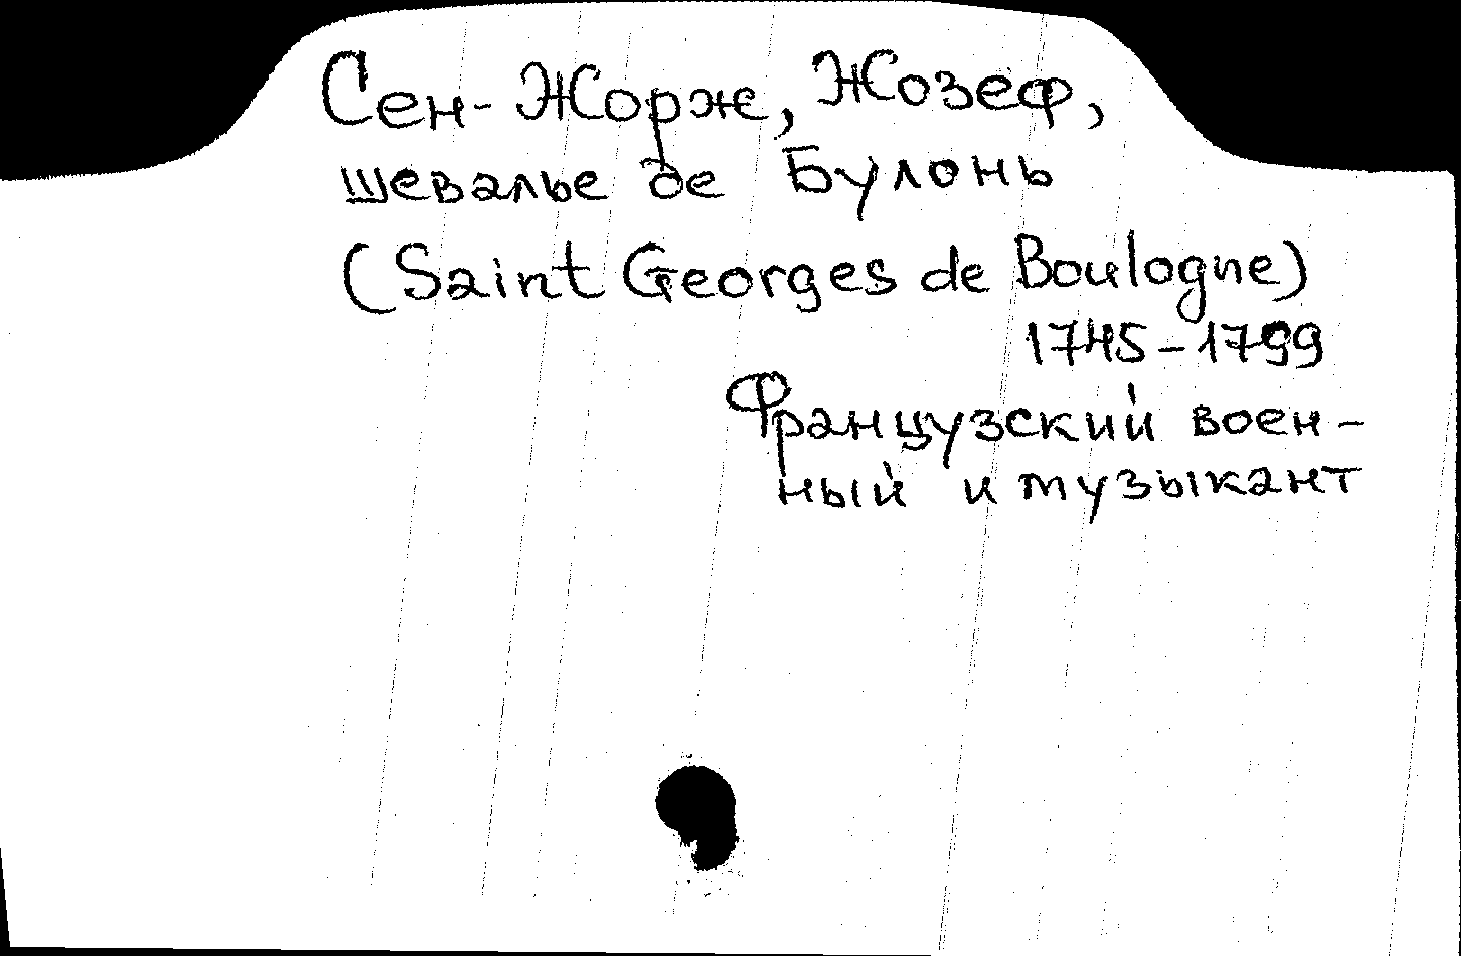 Сен-Жорж, Жозеф,
шевалье де Булонь
(Saint Georges de Boulogne)
1745-1799
Французский воен-
ный и музыкант